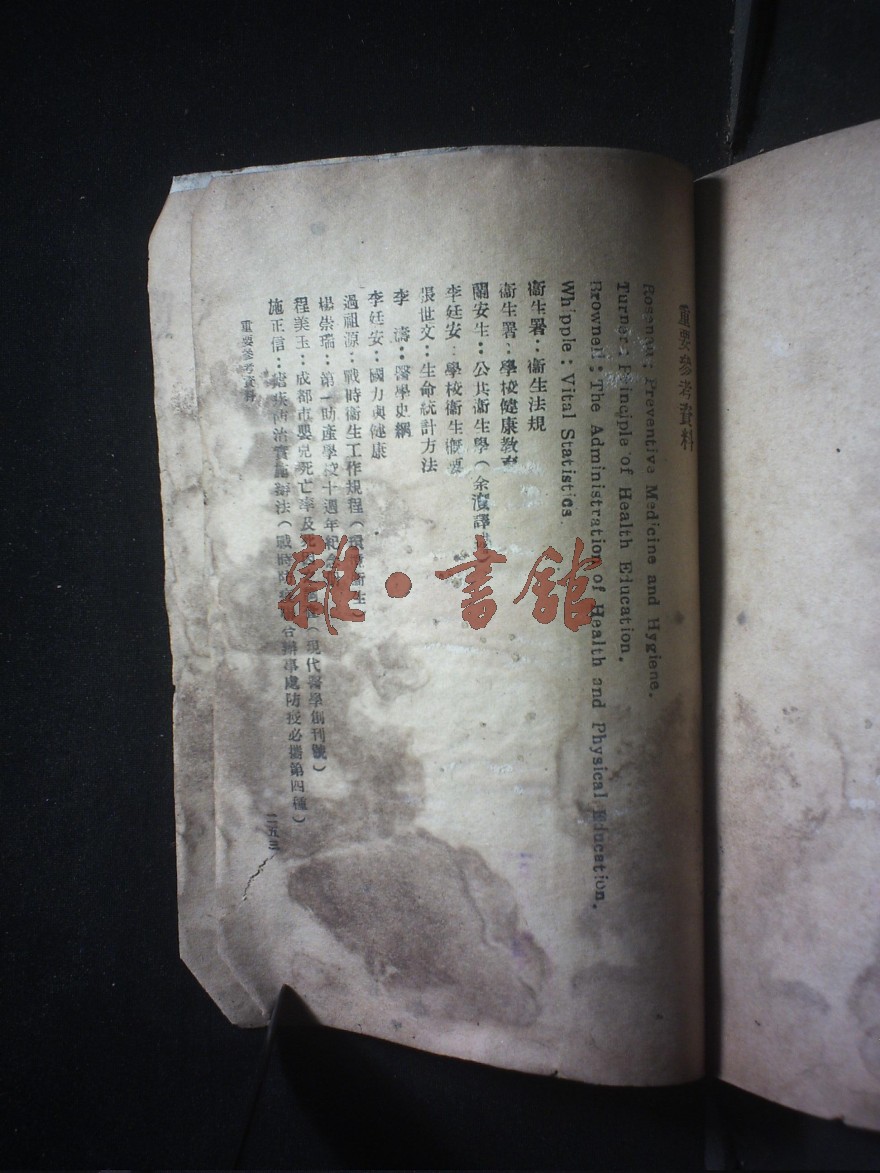 重要參考資料
Rosenau: Preventive Medicine and Hygiene.
Turner: Principle of Health Education.
Brownell: The Administration of Health and Physical Education.
Whipple: Vital Statistics
衞生署：衞生法規
衞生署：學校健康教育
蘭安生：公共衞生學（余濱譯
李廷安：學校衞生概要
張世文：生命統計方法
李　濤：醫學史綱
李廷安：國力與健康
過祖源：戰時衞生工作規程（環境衞生）
楊崇瑞：第一助產學校十週年紀念
程美玉：成都市嬰兒死亡率及死（現代醫學創刊號）
施正信：瘧疾防治實施辦法（戰時防疫聯合辦事處防疫必攜第四種）
重要參考資料
二五三
雜·書館